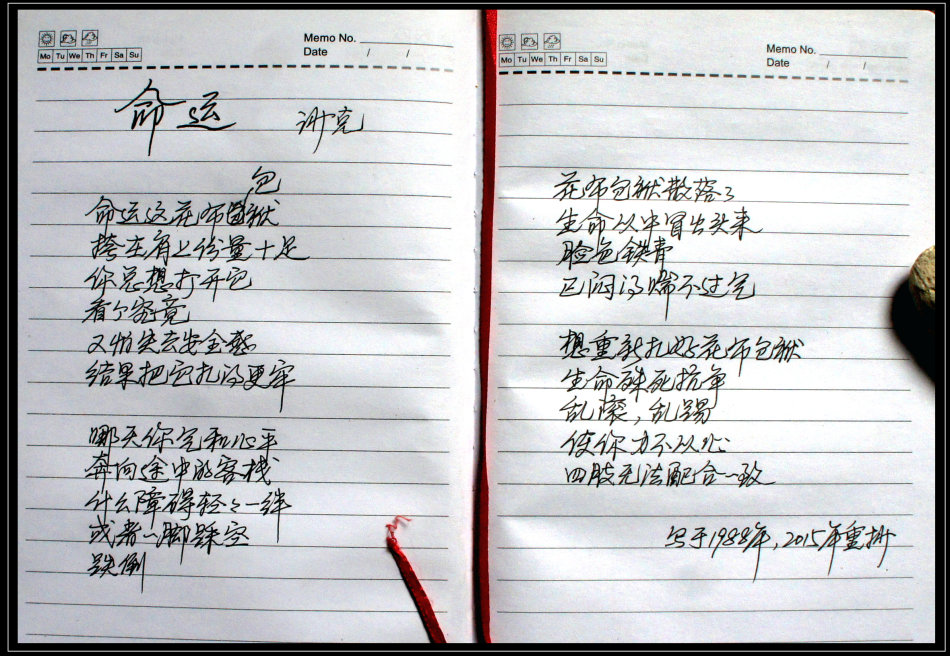 Memo No.
Date / /
Mo Tu We Th Fr Sa Su
命运 谢克
包
命运这花布袱
挎在肩上份量十足
你总想打开它
看个究竟
又怕失去安全感
结果把它扎得更牢
哪天你气和心平
奔向途中的客栈
什么障碍轻轻一绊
或者一脚踩空
跌倒
Memo No.
Date / /
Mo Tu We Th Fr Sa Su
花布包袱散落了
生命从中冒出头来
脸色铁青
已闷得喘不过气
想重新扎好花布包袱
生命殊死抗争
乱滚，乱踢
使你力不从心
四肢无法配合一致
写于1988年，2015年重抄